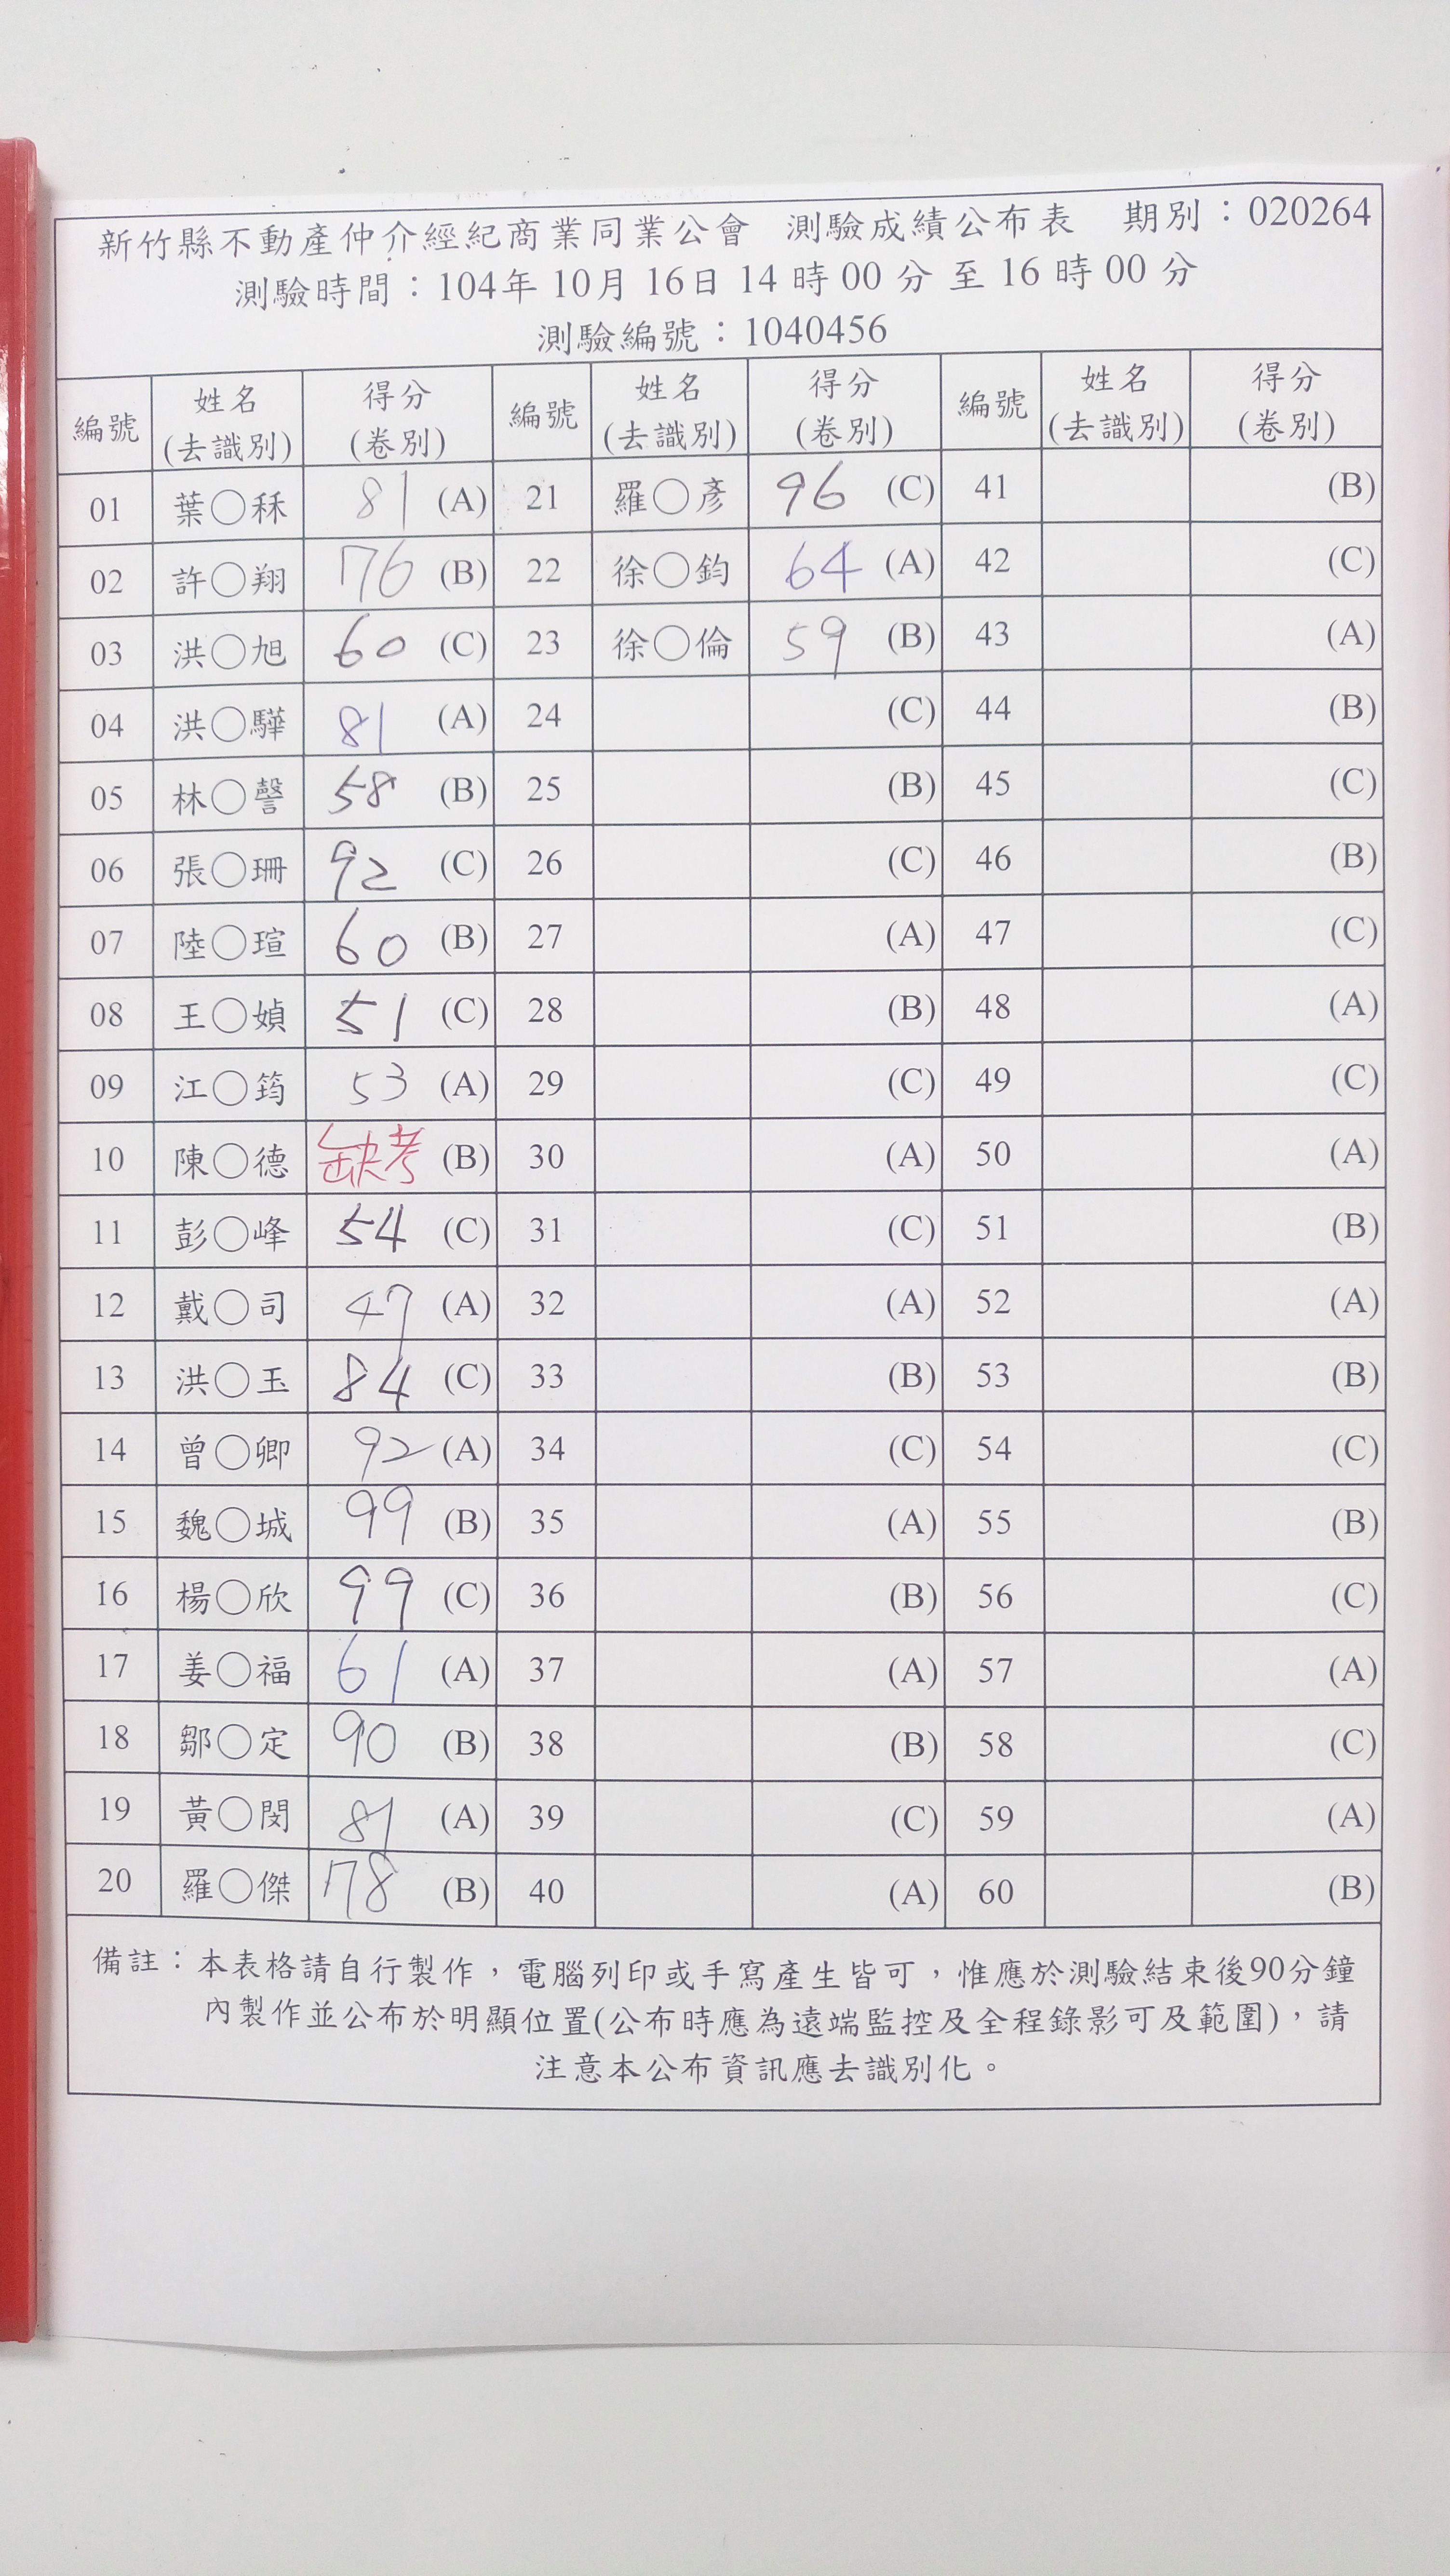 新竹縣不動產仲介經紀商業同業公會 測驗成績公布表 期別：020264
測驗時間：104年 10月 16日 14 時 00 分 至 16 時 00 分
測驗編號：1040456
編號 姓名(去識別) 得分(卷別) 編號 姓名(去識別) 得分(卷別) 編號 姓名(去識別) 得分(卷別)
01 葉○秝 81 (A) 21 羅○彥 96 (C) 41 (B)
02 許○翔 76 (B) 22 徐○鈞 64 (A) 42 (C)
03 洪○旭 60 (C) 23 徐○倫 59 (B) 43 (A)
04 洪○驊 81 (A) 24 (C) 44 (B)
05 林○謦 58 (B) 25 (B) 45 (C)
06 張○珊 92 (C) 26 (C) 46 (B)
07 陸○瑄 60 (B) 27 (A) 47 (C)
08 王○媜 51 (C) 28 (B) 48 (A)
09 江○筠 53 (A) 29 (C) 49 (C)
10 陳○德 缺考 (B) 30 (A) 50 (A)
11 彭○峰 54 (C) 31 (C) 51 (B)
12 戴○司 47 (A) 32 (A) 52 (A)
13 洪○玉 84 (C) 33 (B) 53 (B)
14 曾○卿 92 (A) 34 (C) 54 (C)
15 魏○城 99 (B) 35 (A) 55 (B)
16 楊○欣 99 (C) 36 (B) 56 (C)
17 姜○福 61 (A) 37 (A) 57 (A)
18 鄒○定 90 (B) 38 (B) 58 (C)
19 黃○閔 81 (A) 39 (C) 59 (A)
20 羅○傑 78 (B) 40 (A) 60 (B)
備註：本表格請自行製作，電腦列印或手寫產生皆可，惟應於測驗結束後90分鐘
內製作並公布於明顯位置(公布時應為遠端監控及全程錄影可及範圍)，請
注意本公布資訊應去識別化。